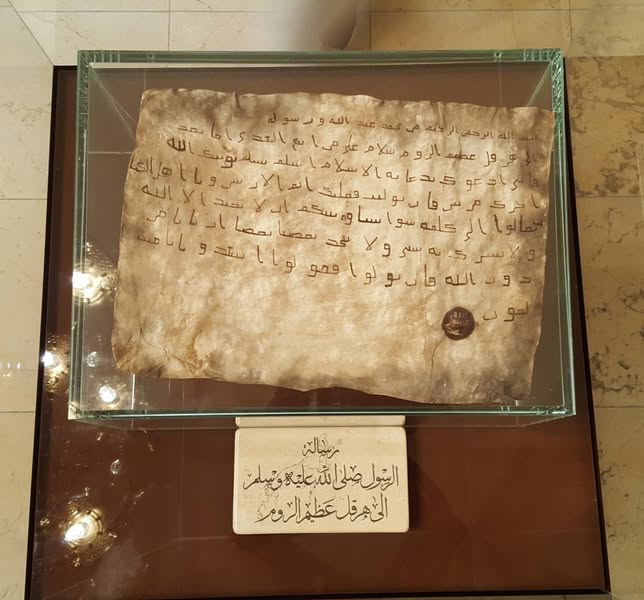 بسم الله الرحمن الرحيم من محمد عبد الله ورسوله
الى هرقل عظيم الروم سلام على من اتبع الهدى اما بعد
فانى ادعوك بدعاية الاسلام اسلم تسلم يوتك الله
اجرك مرتين فان توليت فعليك اثم الاريسين ويا اهل الكتب
تعالوا الى كلمة سوا بيننا وبينكم ان لا نعبد الا الله
ولا نشرك به شى ولا يتخذ بعضنا بعضا اربابا من
دون الله فان تولوا فقولوا اشهدو بانا مسل
مون
الله
رسول
رسالة
الرسول صلى الله عليه وسلم
الى هرقل عظيم الروم